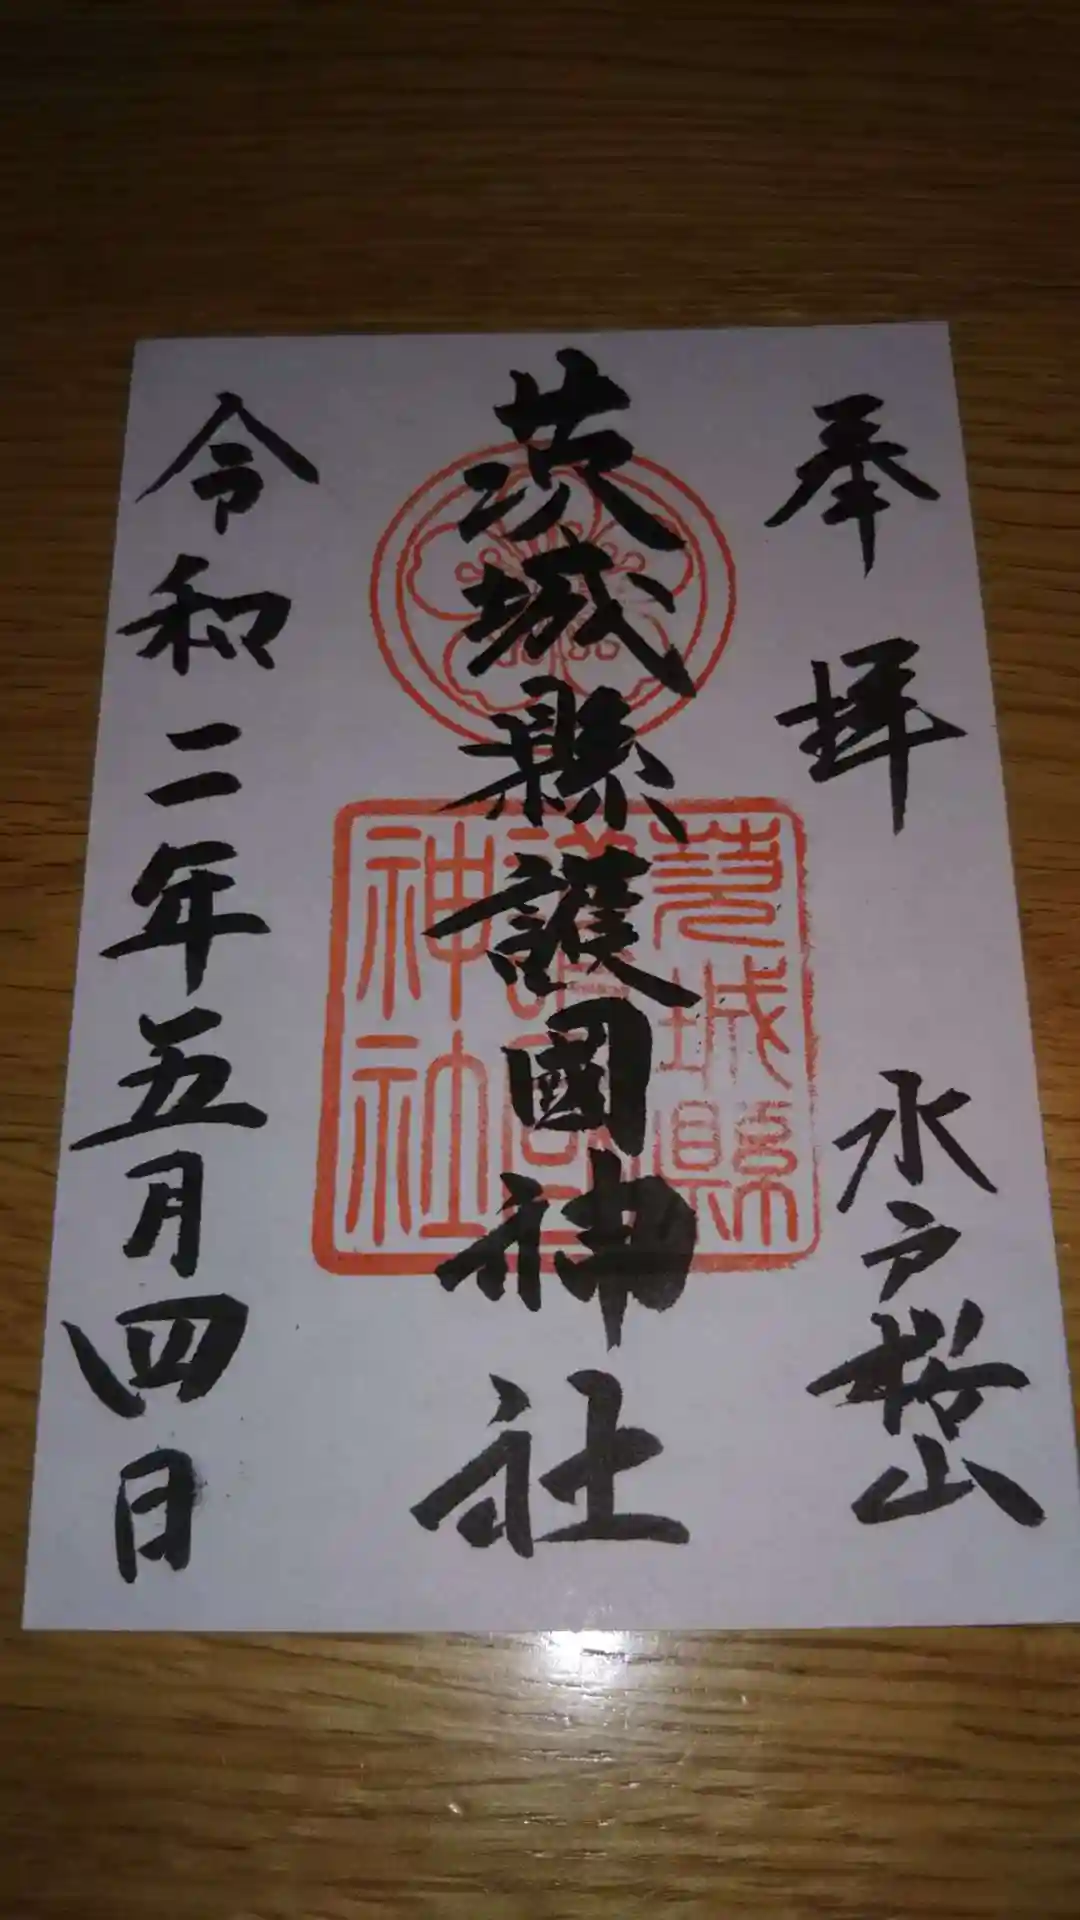 奉拝
水戸桜山
茨城縣護國神社
茨城縣
護國
神社
令和二年五月四日